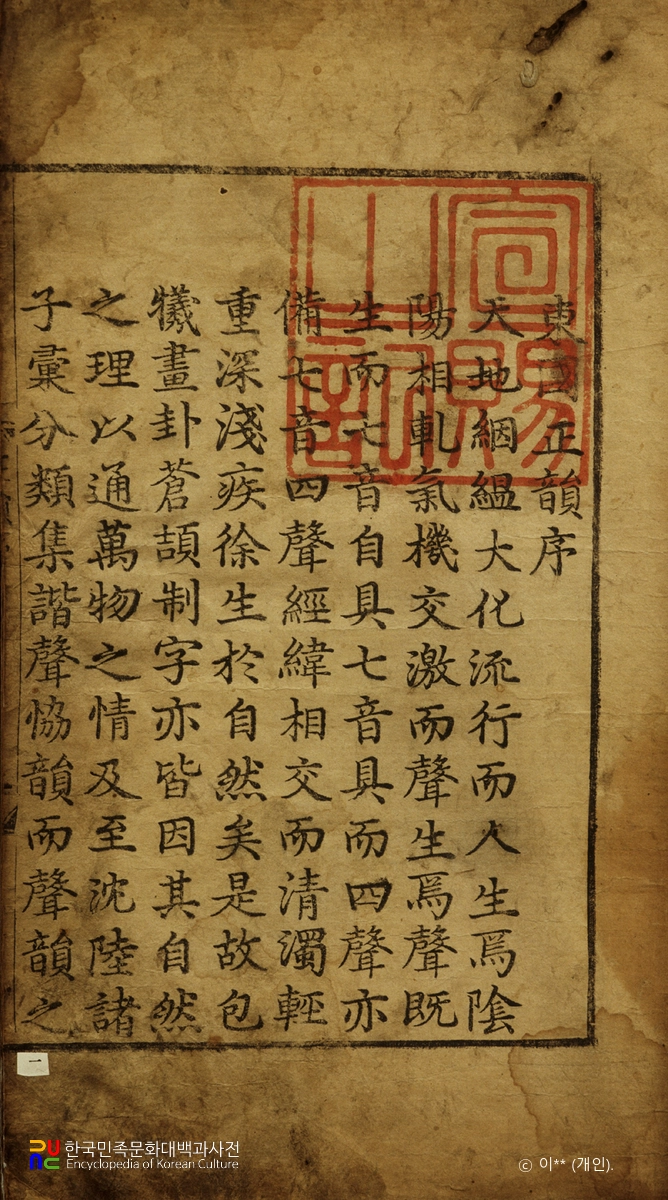 東國正韻序
天地絪縕大化流行而人生焉陰
陽相軋氣機交激而聲生焉聲既
生而七音自具七音具而四聲亦
備七音四聲經緯相交而清濁輕
重深淺疾徐生於自然矣是故包
犧畫卦蒼頡制字亦皆因其自然
之理以通萬物之情及至沈陸諸
子彙分類集諧聲協韻而聲韻之
宣賜之記
一
한국민족문화대백과사전
Encyclopedia of Korean Culture
© 이** (개인).